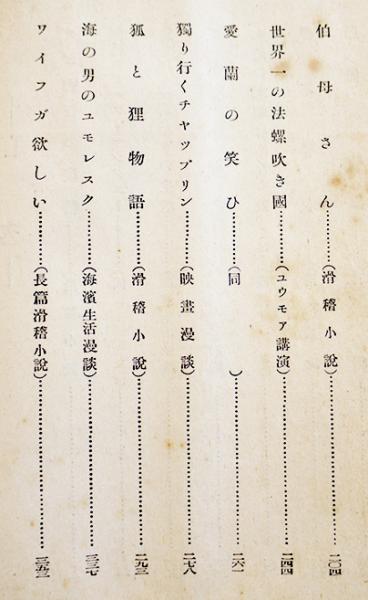 伯母さん…………(滑稽小說)…………二〇四
世界一の法螺吹き國…………(ユウモア講演)…………二四四
愛蘭の笑ひ…………(同)…………二六一
獨り行くチヤツプリン…………(映畫漫談)…………二七八
狐と狸物語…………(滑稽小說)…………二九三
海の男のユモレスク…………(海濱生活漫談)…………三三七
ワイフガ欲しい…………(長篇滑稽小說)…………三五三